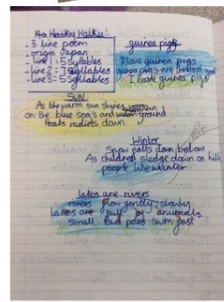 Haiku
- 3 line poem
- origin Japan
- line 1: 5 syllables
- line 2 - 7 syllables
- line 3 - 5 syllables
guinea pigs
I love guinea pigs
guinea pigs are
I have guinea pigs
Sun
As the warm sun shines
on the blue sea's and ground
Heats down
Winter
Snow falls down below
As children sledge down on hill
people like winter
lakes are rivers
rivers flow gently, slowly
lakes are full of animals
small past